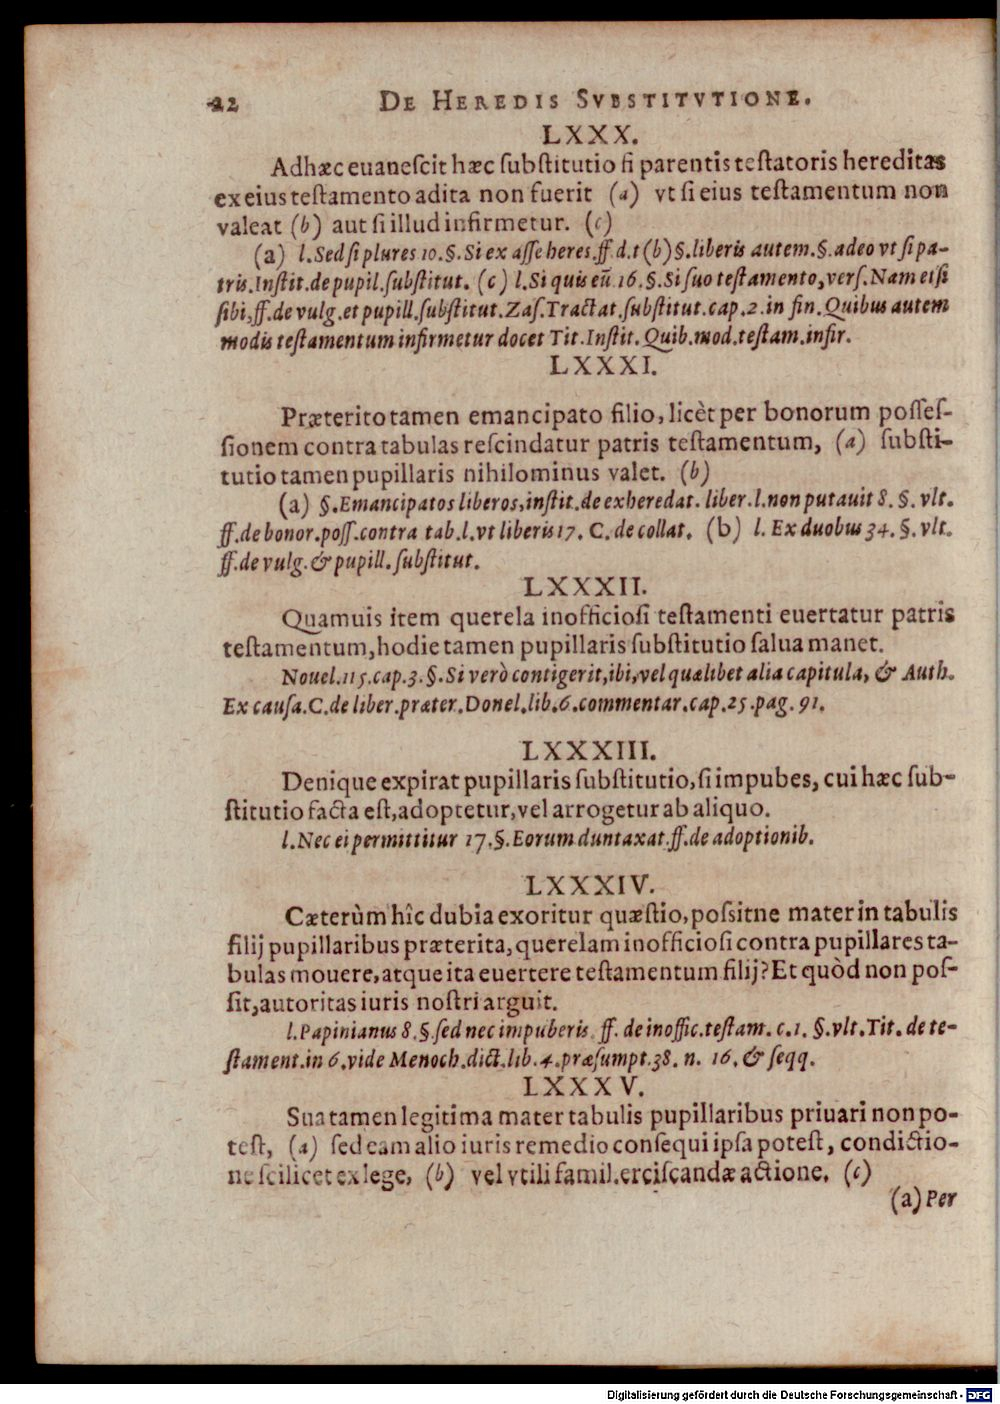 22 DE HEREDIS SVBSTITVTIONE.
LXXX.
Adhæc euanescit hæc substitutio si parentis testatoris hereditas
ex eius testamento adita non fuerit (a) vt si eius testamentum non
valeat (b) aut si illud infirmetur. (c)
(a) l. Sed si plures 10. §. Si ex asse heres. ff. d. t (b) §. liberis autem. §. adeo vt si pa-
tris. Instit. de pupil. substitut. (c) l. Si quis eũ. 16. §. Si suo testamento, vers. Nam etsi
sibi, ff. de vulg. et pupill. substitut. Zas. Tractat. substitut. cap. 2. in fin. Quibus autem
modis testamentum infirmetur docet Tit. Instit. Quib. mod. testam. infir.
LXXXI.
Præterito tamen emancipato filio, licèt per bonorum posses-
sionem contra tabulas rescindatur patris testamentum, (a) substi-
tutio tamen pupillaris nihilominus valet. (b)
(a) §. Emancipatos liberos, instit. de exheredat. liber. l. non putauit 8. §. vlt.
ff. de bonor. poss. contra tab. l. vt liberis 17. C. de collat. (b) l. Ex duobus 34. §. vlt.
ff. de vulg. & pupill. substitut.
LXXXII.
Quamuis item querela inofficiosi testamenti euertatur patris
testamentum, hodie tamen pupillaris substitutio salua manet.
Nouel. 115. cap. 3. §. Si verò contigerit, ibi, vel quælibet alia capitula, & Auth.
Ex causa. C. de liber. præter. Donel. lib. 6. commentar. cap. 25. pag. 91.
LXXXIII.
Denique expirat pupillaris substitutio, si impubes, cui hæc sub-
stitutio facta est, adoptetur, vel arrogetur ab aliquo.
l. Nec ei permittitur 17. §. Eorum duntaxat. ff. de adoptionib.
LXXXIV.
Cæterùm hîc dubia exoritur quæstio, possitne mater in tabulis
filij pupillaribus præterita, querelam inofficiosi contra pupillares ta-
bulas mouere, atque ita euertere testamentum filij? Et quòd non pos-
sit, autoritas iuris nostri arguit.
l. Papinianus 8. §. sed nec impuberis. ff. de inoffic. testam. c. 1. §. vlt. Tit. de te-
stament. in 6. vide Menoch. dict. lib. 4. præsumpt. 38. n. 16. & seqq.
LXXXV.
Sua tamen legitima mater tabulis pupillaribus priuari non po-
test, (a) sed eam alio iuris remedio consequi ipsa potest, condictio-
ne scilicet ex lege, (b) vel vtili famil. erciscandæ actione. (c)
(a) Per
Digitalisierung gefördert durch die Deutsche Forschungsgemeinschaft - DFG